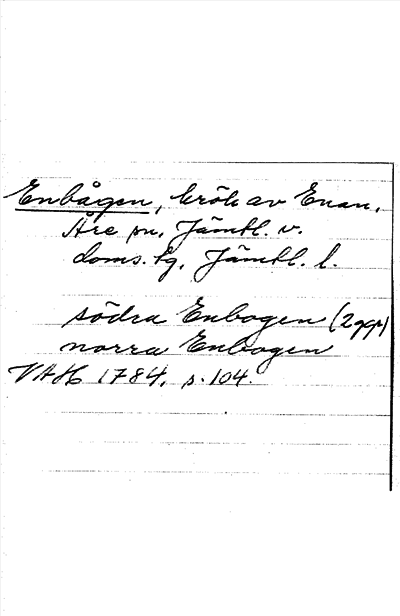 Enbågen, krök av Enan,
Åre sn, Jämtl. v.
doms. tg, Jämtl. l.
södra Enbogen (2 ggr)
norra Enbogen
VAH 1784, s. 104.